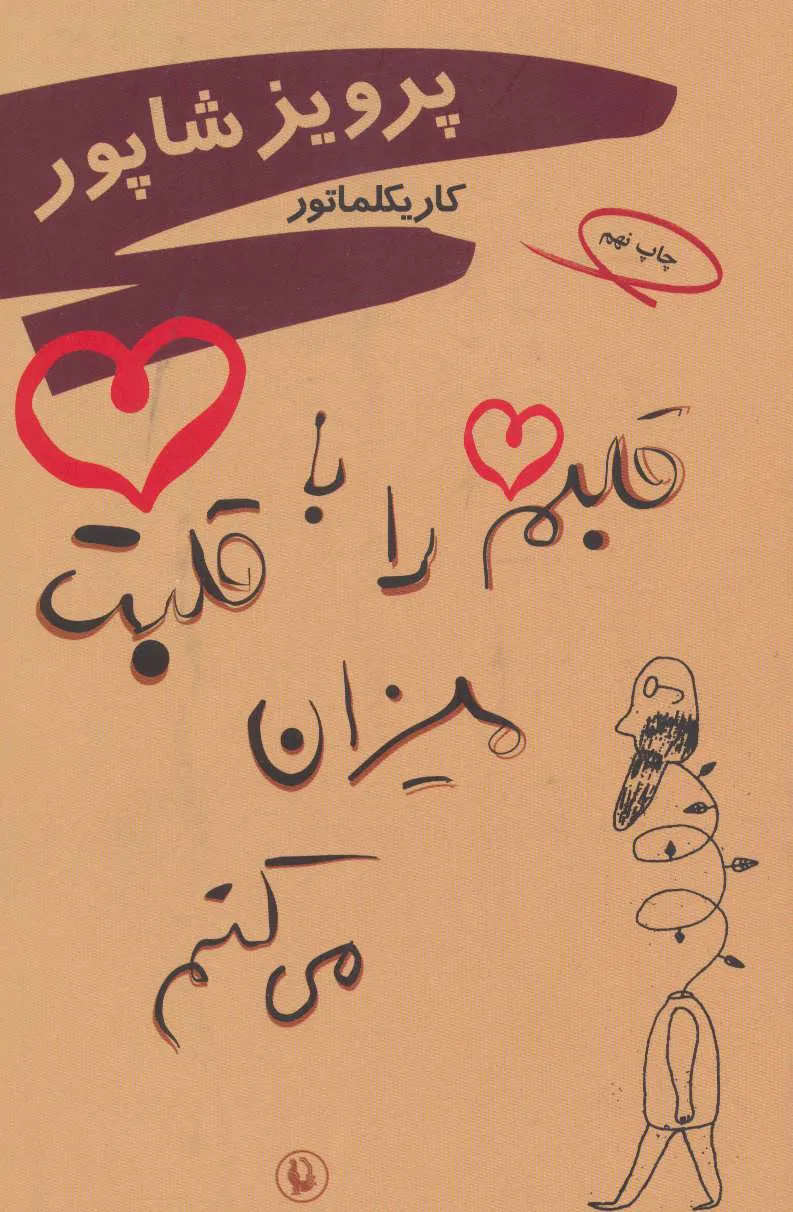 پرویز شاپور
کاریکلماتور
چاپ نهم
قلبم را با قلبت
میزان
می کنم